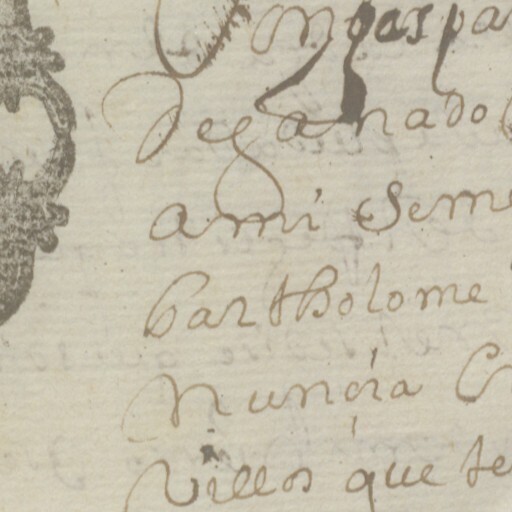 Dn gaspa
de ganado
a mi Seme
bartholome
Nuncia Cr
villos que te